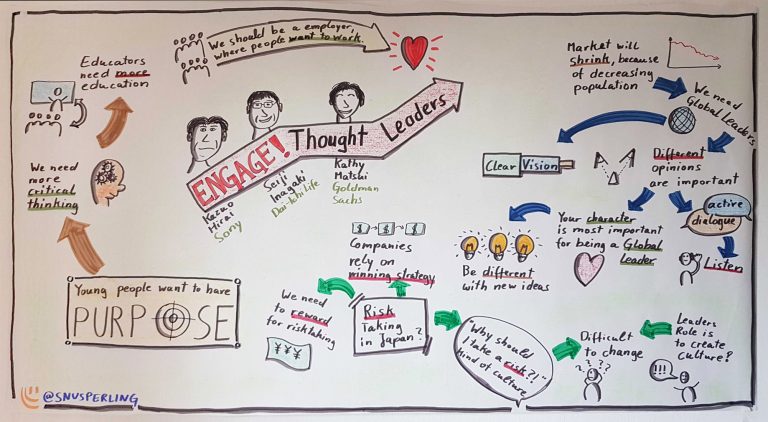 We should be a employer,
where people want to work.
Educators
need more
education
We need
more
critical
thinking
Young people want to have
PURPOSE
@SNUSPERLING
ENGAGE! Thought Leaders
Kazuo
Hirai
Sony
Seiji
Inagaki
Dai-Ichi Life
Kathy
Matski
Goldman
Sachs
Market will
shrink, because
of decreasing
population
We need
Global Leaders
Clear Vision
Different
opinions
are important
active
dialogue
Listen
Your character
is most important
for being a Global
Leader
Be different
with new ideas
$ $ $
Companies
rely on
winning strategy
We need
to reward
for risktaking
¥¥¥
Risk
Taking
in Japan?
"Why should
I take a risk?!"
kind of culture
Difficult
to change
? ? ? ?
Leaders
Role is
to create
culture?
!!!